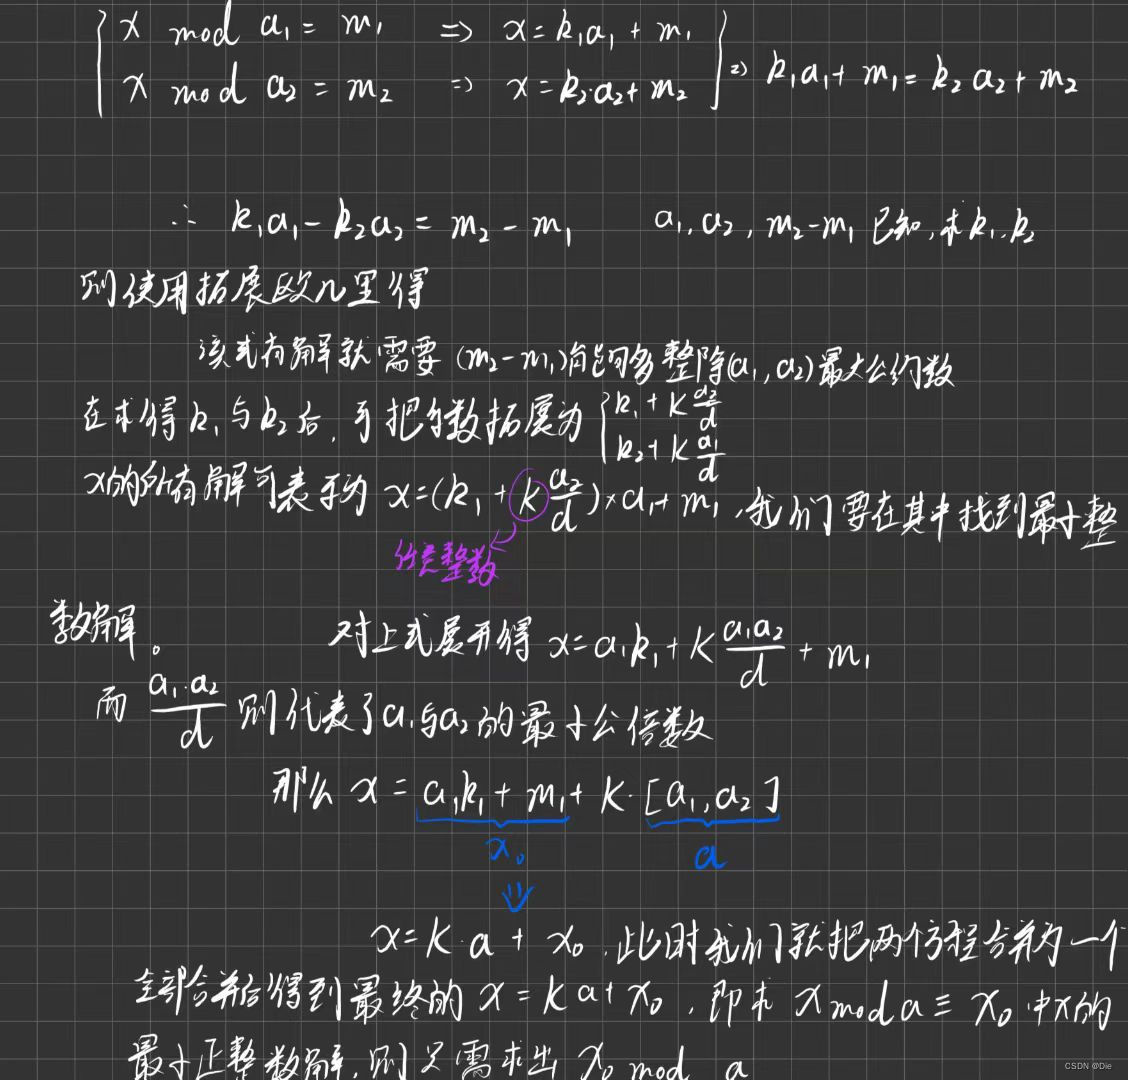 x mod a₁ = m₁ => x = k₁a₁ + m₁
x mod a₂ = m₂ => x = k₂·a₂ + m₂ => k₁a₁ + m₁ = k₂a₂ + m₂
∴ k₁a₁ - k₂a₂ = m₂ - m₁ a₁, a₂, m₂-m₁ 已知, 求k₁, k₂
则使用拓展欧几里得
该式有解就需要 (m₂-m₁)能够整除(a₁, a₂)最大公约数
在求得k₁与k₂后, 可把参数拓展为 { k₁ + k a₂/d
k₂ + k a₁/d
x的所有解可表示为 x = (k₁ + k a₂/d) × a₁ + m₁, 我们要在其中找到最小整
任意整数
数解。 对上式展开得 x = a₁k₁ + k a₁a₂/d + m₁
而 a₁·a₂/d 则代表了a₁与a₂的最小公倍数
那么 x = a₁k₁ + m₁ + k·[a₁, a₂]
x₀ a
x = k·a + x₀, 此时我们就把两个方程合并为一个
全部合并后得到最终的 x = ka + x₀, 即求 x mod a ≡ x₀ 中x的
最小正整数解, 则只需求出 x₀ mod a
CSDN @Die